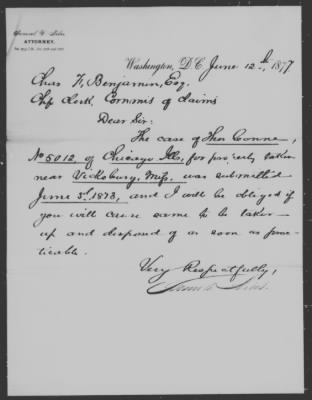 Samuel
ATTORNEY,
Washington, D.C. June 12th, 1877
Chas F. Benjamin, Esq.
Chf Clerk, Commis of Claims
Dear Sir:
The case of Thos Conne,
No 5012 of Chicago Ills, for property taken
near Vicksburg, Miss. was submitted
June 3d, 1873, and I will be obliged if
you will cause same to be taken
up and disposed of as soon as prac-
ticable.
Very Respectfully,